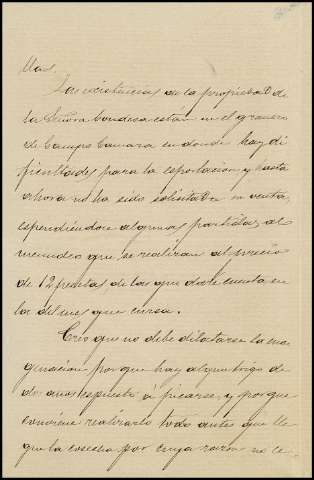 Mas.
Las existencias en la propiedad de
la Señora Condesa están en el granero
de Campo Camara en donde hay di
ficultades para la esportacion, y hasta
ahora no ha sido solicitada su venta,
espendiéndose algunas partidas al
menudeo que se realizan al precio
de 12 pesetas, de las que dare cuenta en
la del mes que cursa.
Creo que no debe dilatarse la ena
genacion por que hay algun trigo de
dos años espuesto á picarse, y por que
conviene realizarlo todo antes que lle
gue la cosecha por cuya razon no ce-